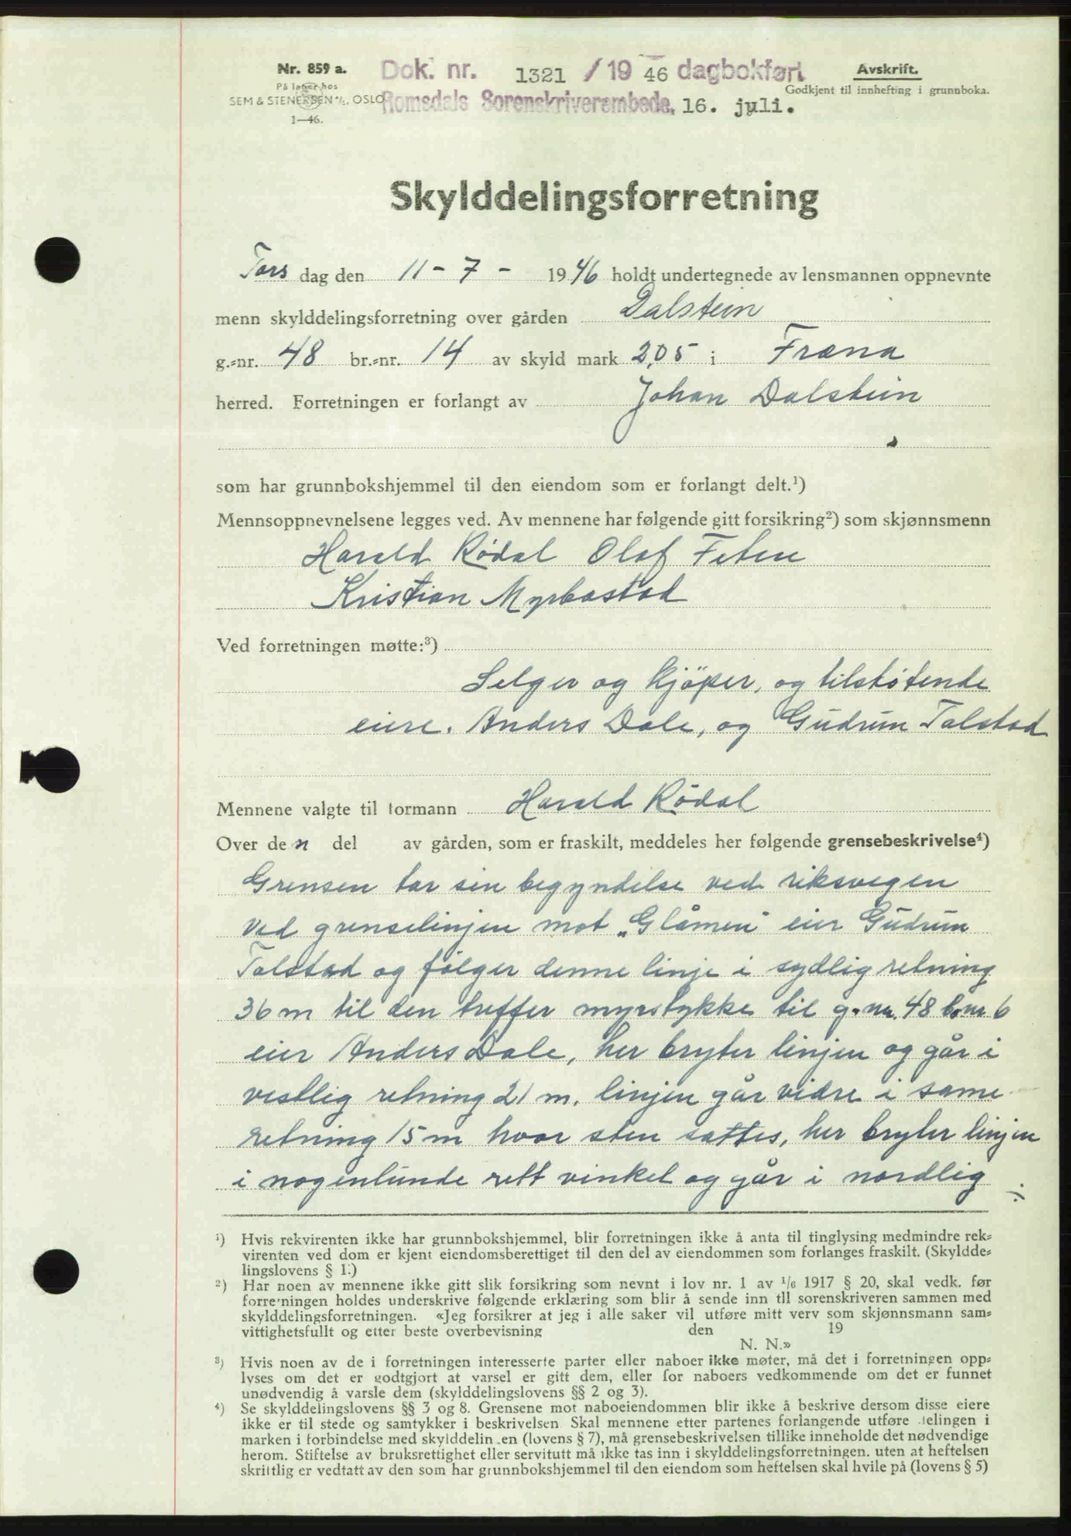 Nr. 859 a.
På lager hos
SEM & STENERSEN A/S, OSLO
1—46.
Dok. nr. 1321 / 19 46 dagbokført
Romsdals Sorenskriverembede, 16. juli.
Avskrift.
Godkjent til innhefting i grunnboka.
Skylddelingsforretning
Tors dag den 11 - 7 - 19 46 holdt undertegnede av lensmannen oppnevnte
menn skylddelingsforretning over gården Dalstein
g.-nr. 48 br.-nr. 14 av skyld mark 2,05 i Fræna
herred. Forretningen er forlangt av Johan Dalstein
som har grunnbokshjemmel til den eiendom som er forlangt delt.¹)
Mennsoppnevnelsene legges ved. Av mennene har følgende gitt forsikring²) som skjønnsmenn
Harald Rødal Olaf Feten
Kristian Myrbostad
Ved forretningen møtte:³)
Selger og kjöper, og tilstøtende
eiere. Anders Dale, og Gudrun Talstad
Mennene valgte til formann Harald Rödal
Over de n del av gården, som er fraskilt, meddeles her følgende grensebeskrivelse⁴)
Grensen tar sin begyndelse ved riksvegen
ved grenselinjen mot „Glåmen" eier Gudrun
Talstad og følger denne linje i sydlig retning
36 m til den treffer myrstykke til g.nr. 48 b.nr. 6
eier Anders Dale, her bryter linjen og går i
vestlig retning 21 m. linjen går vidre i same
retning 15 m hvor sten sattes, her bryter linjen
i nogenlunde rett vinkel og går i nordlig ÷
¹) Hvis rekvirenten ikke har grunnbokshjemmel, blir forretningen ikke å anta til tinglysing medmindre rek-
virenten ved dom er kjent eiendomsberettiget til den del av eiendommen som forlanges fraskilt. (Skyldde-
lingslovens § 1.)
²) Har noen av mennene ikke gitt slik forsikring som nevnt i lov nr. 1 av 1/6 1917 § 20, skal vedk. før
forretningen holdes underskrive følgende erklæring som blir å sende inn til sorenskriveren sammen med
skylddelingsforretningen. «Jeg forsikrer at jeg i alle saker vil utføre mitt verv som skjønnsmann sam-
vittighetsfullt og etter beste overbevisning den 19
N. N.»
³) Hvis noen av de i forretningen interesserte parter eller naboer ikke møter, må det i forretningen opp-
lyses om det er godtgjort at varsel er gitt dem, eller for naboers vedkommende om det er funnet
unødvendig å varsle dem (skylddelingslovens §§ 2 og 3).
⁴) Se skylddelingslovens §§ 3 og 8. Grensene mot naboeiendommen blir ikke å beskrive dersom disse eiere
ikke er til stede og samtykker i beskrivelsen Skal mennene etter partenes forlangende utføre delingen i
marken i forbindelse med skylddelingen (lovens § 7), må grensebeskrivelsen tillike inneholde det nødvendige
herom. Stiftelse av bruksrettighet eller servitutt må ikke tas inn i skylddelingsforretningen, uten at heftelsen
skriftlig er vedtatt av den som har grunnbokshjemmel til den eiendom som heftelsen skal hvile på (lovens § 5)